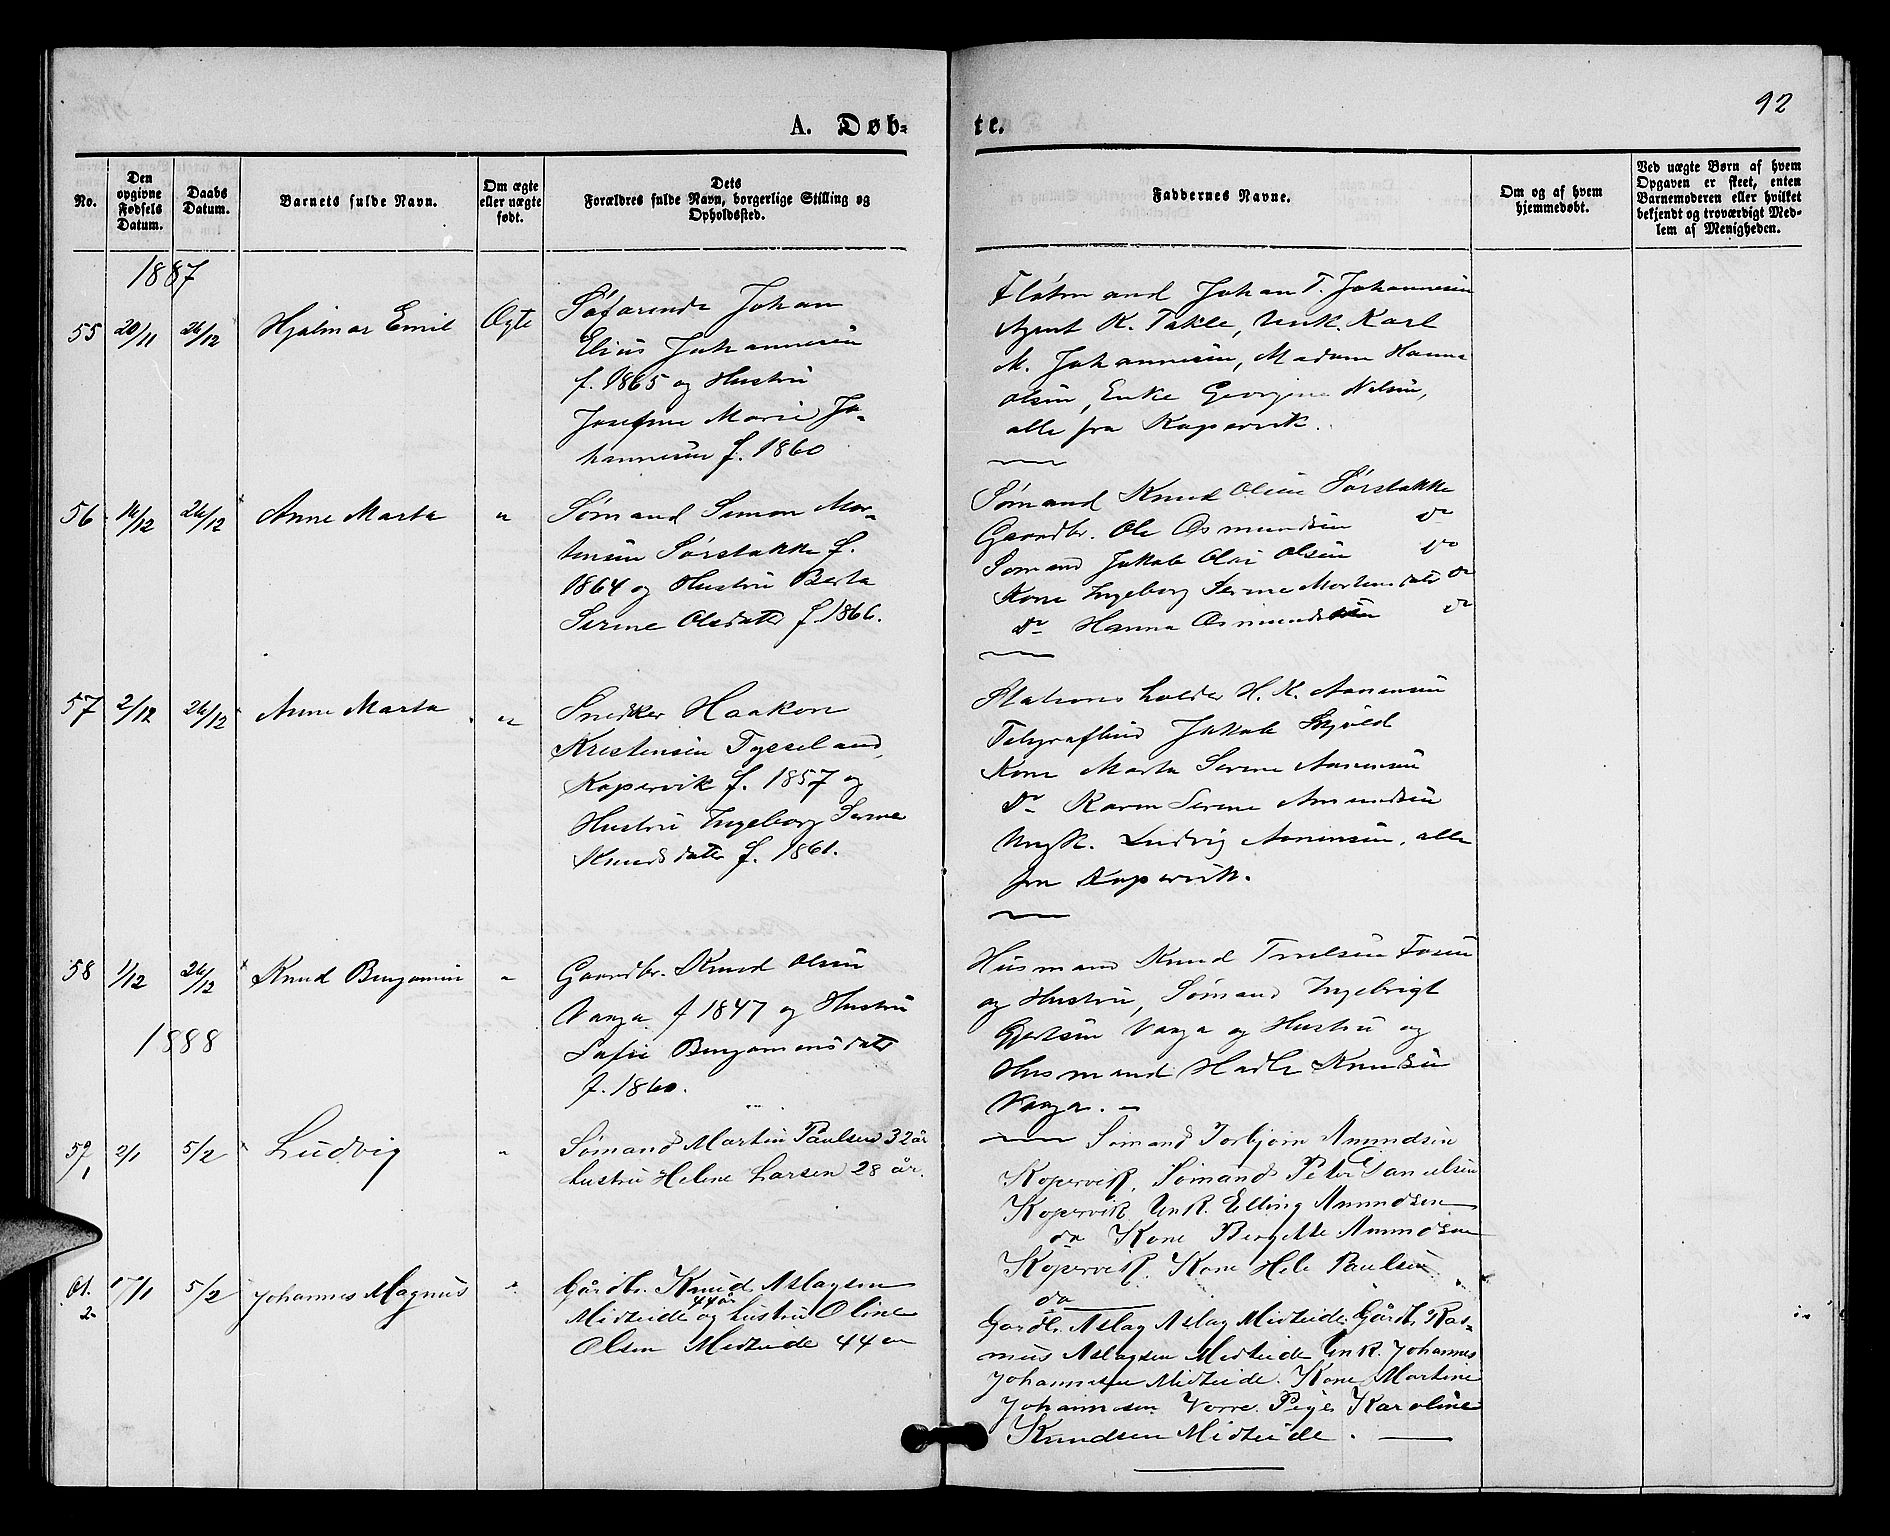 92
A. Døb-
te.
No.
Den opgivne Fødsels Datum.
Daabs Datum.
Barnets fulde Navn.
Om ægte eller uægte født.
Dets Forældres fulde Navn, borgerlige Stilling og Opholdssted.
Faddernes Navne.
Om og af hvem hjemmedøbt.
Ved uægte Børn af hvem Opgaven er skeet, enten Barnemoderen eller hvilket bekjendt og troværdigt Medlem af Menigheden.
1887
55 20/11 26/12 Hjalmar Emil Ægte
Søfarende Johan
Elius Johannesen
f. 1865 og Hustru
Josefine Marie Jo-
hannesen f. 1860
Flótmand Johan T. Johannesen
Agent K. Takle, Unk. Karl
M. Johannesen, Madam Hanna
Olsen, Enke Georgine Nilsen,
alle fra Kopervik.
56 14/12 26/12 Anne Marta "
Sømand Simon Mor-
tensen Sørstokke f.
1864 og Hustru Berta
Serine Olsdatter f. 1866.
Sømand Knud Olsen Sørstokke
Gaardbr. Ole Osmundsen do
Sømand Jakob Olai Olsen do
Kone Ingeborg Serine Mortensdatter do
do Hanna Osmundsen do
57 2/12 26/12 Anne Marta "
Snedker Haakon
Kristensen Tysseland,
Kopervik f. 1857 og
Hustru Ingeborg Serine
Knudsdatter f. 1861.
Stationsholder H. K. Aanensen
Telegrafbud Jakob Skjold
Kone Marta Serine Aanensen
do Karen Serine Amundsen
Ungk. Ludvig Aanensen, alle
fra Kopervik.
58 1/12 26/12 Knud Benjamin "
Gaardbr. Knud Olsen
Vaaga f 1847 og Hustru
Sofie Benjaminsdatter
f. 1860.
Husmand Knud Truelsen Fosen
og Hustru, Sømand Ingebrigt
Gjertsen Vaaga og Hustru og
Husmand Hadle Knudsen
Vaaga.
1888
1 2/1 5/2 Ludvig "
Sømand Martin Paulsen 32 år
hustru Helene Larsen 28 år.
Sømand Torbjørn Amundsen
Kopervik, Sømand Peter Danielsen
Kopervik Unk. Elling Amundsen
do Kone Bergitte Amundsen
Kopervik, Kone Hele Paulsen
do
2 17/1 5/2 Johannes Magnus "
Gårdb. Knud Aslagsen
Midteide 44 år og hustru Oline
Olsen Midteide 44 år
Gardb. Aslag Aslag Midteide, Gårdb. Ras-
mus Aslagsen Midteide Unk. Johannes
Johannesen Midteide. Kone Martine
Johannesen Vorre. Pige Karoline
Knudsen Midteide.